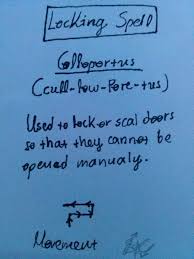 Locking Spell
Colloportus
(cull-low-Pore-tus)
Used to lock or seal doors
so that they cannot be
opened manualy.
Movement